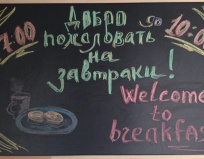 7:00 ДОБРО до 10:00
пожаловать
на
завтраки!
Welcome
to
breakfas